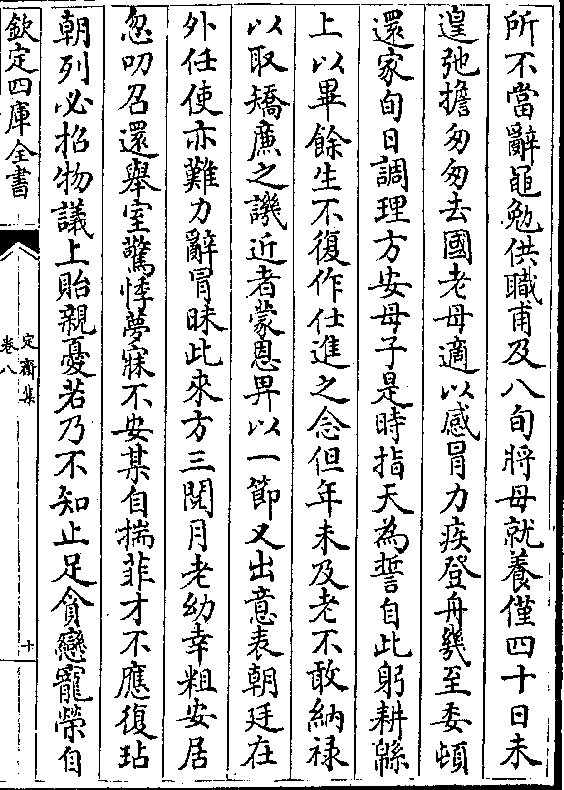 所不當辭黽勉供職甫及八旬將母就養僅四十日未
遑弛擔匆匆去國老母適以感冒力疾登舟幾至委頓
還家旬日調理方安母子是時指天為誓自此躬耕緜
上以畢餘生不復作仕進之念但年未及老不敢納禄
以取矯廉之譏近者蒙恩畀以一節又出意表朝廷在
外任使亦難力辭冐昧此來方三閱月老幼幸粗安居
忽叨召還舉室驚悸夢寐不安某自揣菲才不應復玷
朝列必招物議上貽親憂若乃不知止足貪戀寵榮自
欽定四庫全書
定齋集
卷八
十